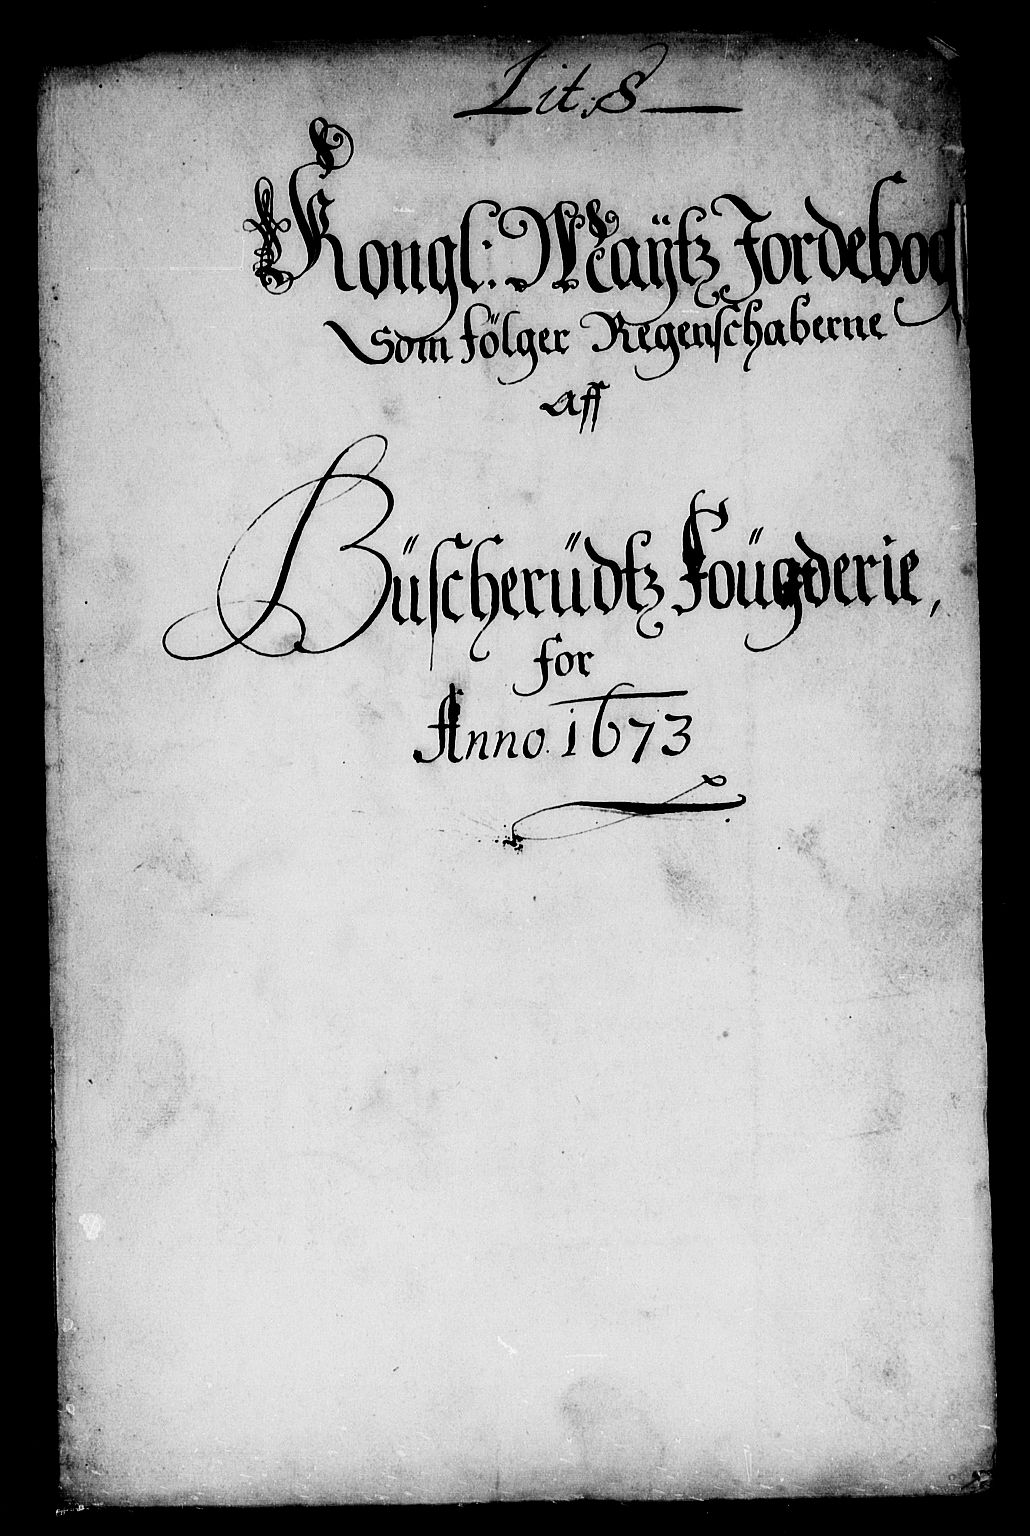 Lit: 8
Kongl: Maÿtz Jordebog
Som fölger Regenschaberne
aff
Büscherüdtz Foügderie,
for
Anno. 1673